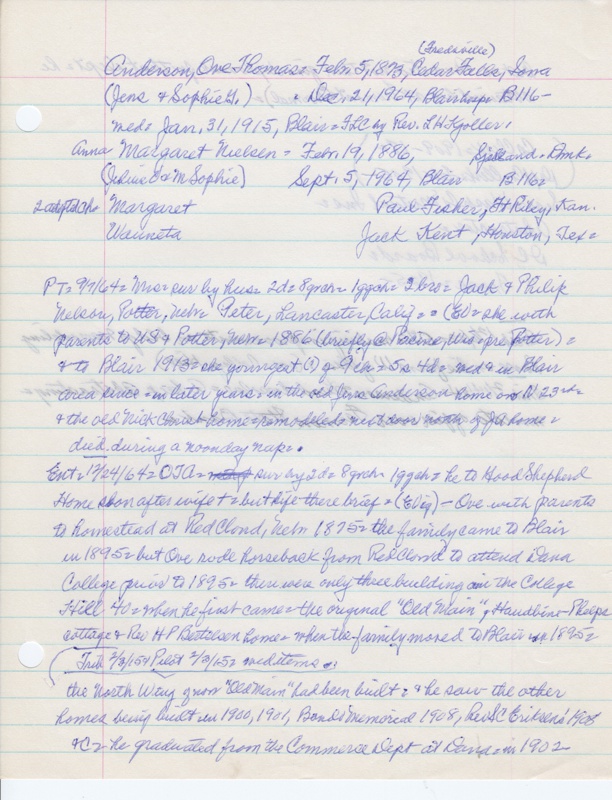 (Fredsville)
Anderson, Ove Thomas = Febr. 5, 1873, Cedar Falls, Iowa
(Jens & Sophie G.) Dec. 21, 1964, Blair hosp B116-
med = Jan. 31, 1915, Blair = FLC by Rev. LH Kjoller.
Anna Margaret Nielsen = Febr. 19, 1886, Sjelland, Dmk =
M Sophie) Sept. 5, 1964, Blair B116=
2 adopted ch = Margaret Paul Fisher, Ft Riley, Kan.
Wauneta Jack Kent, Houston, Tex =
PT = 9/7/64 = Mrs = sur by hus = 2d = 8grch = 1ggch = 2 bro = Jack & Philip
Nelson, Potter, Nebr = Peter, Lancaster, Calif = (EV = she w oth
parents to US & Potter, Nebr = 1886 (briefly @ Racine, Wis = pre Potter) =
& to Blair 1913 = she youngest (?) of 9 ch = 5s 4d = med & in Blair
area since = in later years = in the old Jens Anderson home on N 23rd =
& the old Nick Christ home = remodeled = next door north of JA home =
died during a noonday nap = .
Ent = 12/24/64 = OTA = sur by 2d = 8grch 1ggch = he to Good Shepherd
Home soon after wife + = but life there brief = (EVig) - Ove with parents
to homestead at Red Cloud, Nebr 1875 = the family came to Blair
in 1895 = but Ove rode horseback from Red Cloud to attend Dana
College prior to 1895 = there were only three building on the College
Hill 40 = when he first came = the original "Old Main", Phelps
cottage & Rev HP Bertelsen home = when the family moved to Blair in 1895 =
(Trib 2/3/15 & Pilot 2/3/15 = wed items .
the North Wing of now "Old Main" had been built = & he saw the other
homes being built in 1900, 1901, Bondo Memorial 1908, Rev SC Eriksens' 1908
&C = he graduated from the Commerce Dept at Dana = in 1902